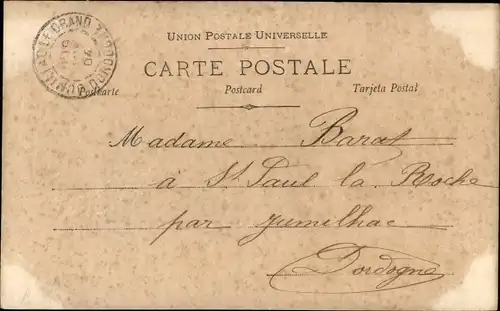 JUMILHAC-LE-GRAND DORDOGNE
UNION POSTALE UNIVERSELLE
CARTE POSTALE
Postkarte Postcard Tarjeta Postal
Madame Barat
à St Paul la Roche
par Jumilhac
Dordogne